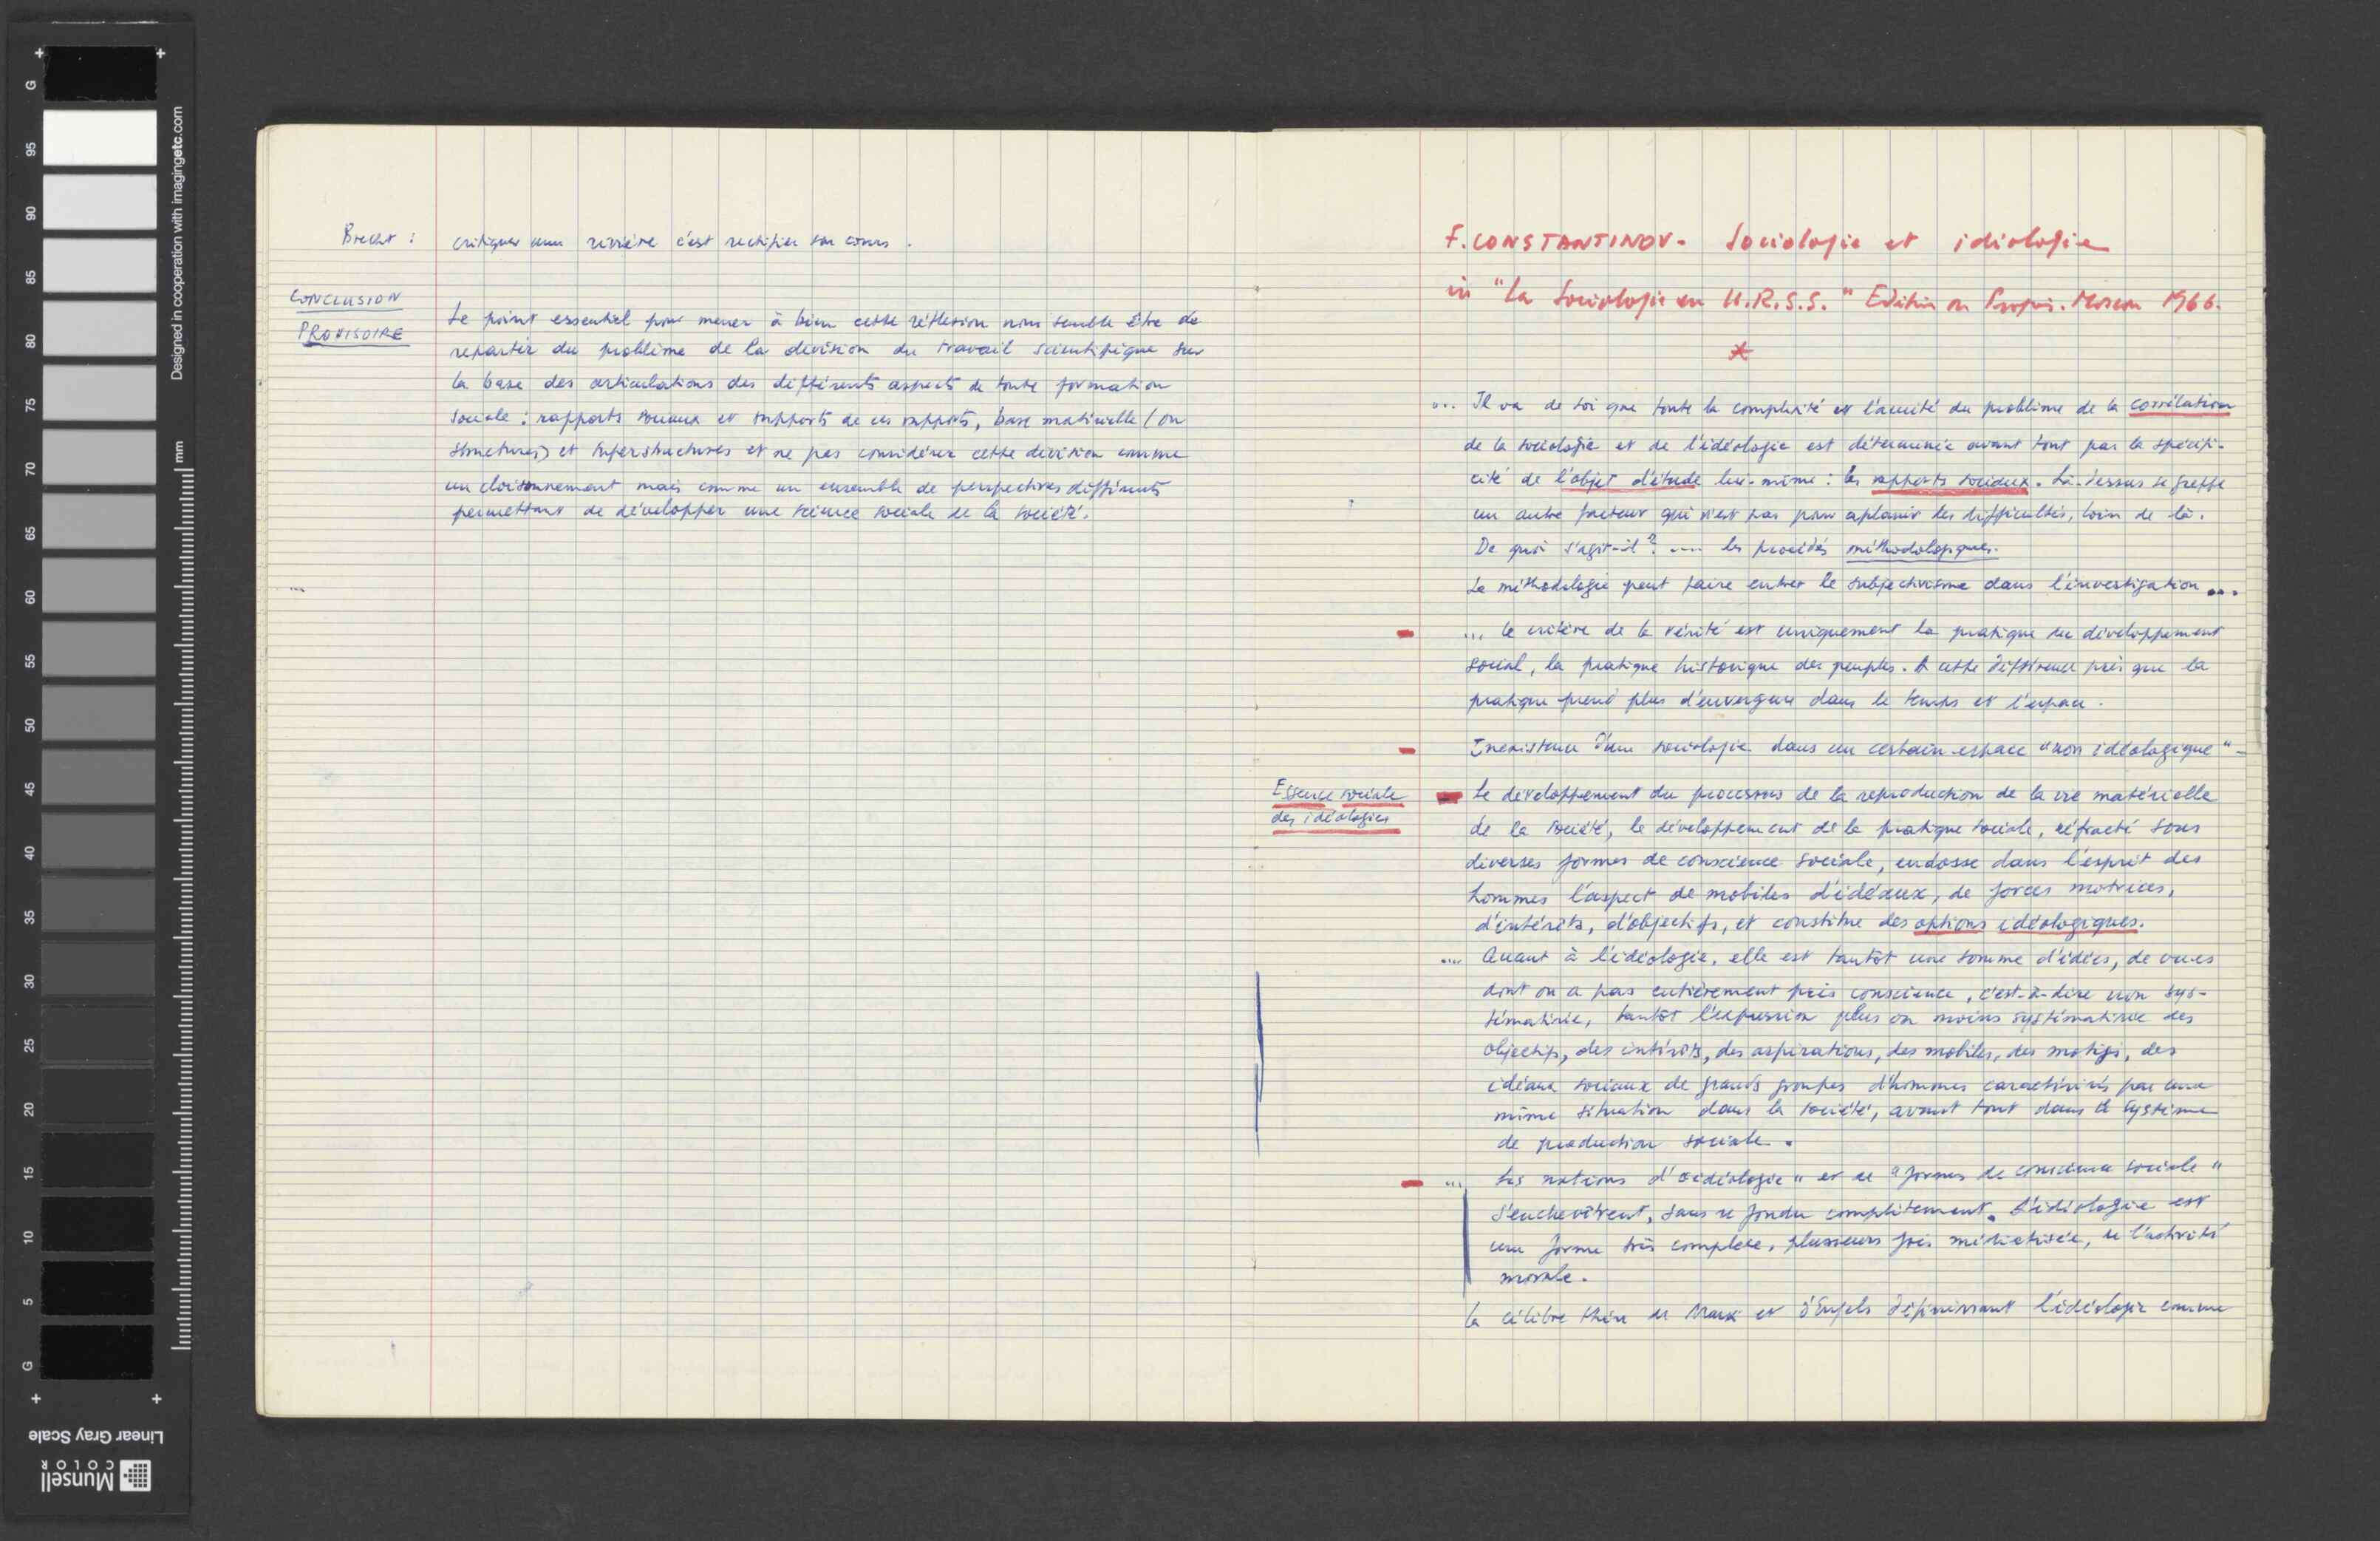 Brecht : critiquer une rivière c'est rectifier son cours .
CONCLUSION
PROVISOIRE
Le point essentiel pour mener à bien cette réflexion nous semble être de
repartir du problème de la division du travail scientifique sur
la base des articulations des différents aspects de toute formation
sociale : rapports sociaux et supports de ces rapports, base matérielle (ou
structures) et superstructures et ne pas considérer cette division comme
un cloisonnement mais comme un ensemble de perspectives différents
permettant de développer une science sociale de la société.
...
F. CONSTANTINOV - Sociologie et idéologie
in "La Sociologie en U.R.S.S." Edition du Progrès. Moscou 1966.
*
... Il va de soi que toute la complexité et l'acuité du problème de la corrélation
de la sociologie et de l'idéologie est déterminée avant tout par la spécifi-
cité de l'objet d'étude lui-même : les rapports sociaux. Là-dessus se greffe
un autre facteur qui n'est pas pour aplanir les difficultés, loin de là.
De quoi s'agit-il ? .... les procédés méthodologiques.
La méthodologie peut faire entrer le subjectivisme dans l'investigation ...
- ... le critère de la vérité est uniquement la pratique du développement
social, la pratique historique des peuples. A cette différence près que la
pratique prend plus d'envergure dans le temps et l'espace.
- Inexistence d'une sociologie dans un certain espace "non idéologique" -
Essence sociale
des idéologies
- Le développement du processus de la reproduction de la vie matérielle
de la société, le développement de la pratique sociale, réfracté sous
diverses formes de conscience sociale, endosse dans l'esprit des
hommes l'aspect de mobiles d'idéaux, de forces motrices,
d'intérêts, d'objectifs, et constitue des options idéologiques.
... Quant à l'idéologie, elle est tantôt une somme d'idées, de vues
dont on a pas entièrement pris conscience, c'est-à-dire non sys-
tématisée, tantôt l'expression plus ou moins systématisée des
objectifs, des intérêts, des aspirations, des mobiles, des motifs, des
idéaux sociaux de grands groupes d'hommes caractérisés par une
même situation dans la société, avant tout dans le système
de production sociale.
- ... Les notions d'"idéologie" et de "formes de conscience sociale"
s'enchevêtrent, sans se fondre complètement. L'idéologie est
une forme très complexe, plusieurs fois médiatisée, de l'activité
morale.
La célèbre thèse de Marx et d'Engels définissant l'idéologie comme
G 95 90 85 80 75 70 65 60 55 50 45 40 35 30 25 20 15 10 5 G
Designed in cooperation with imagingetc.com
mm
Linear Gray Scale
Munsell
COLOR